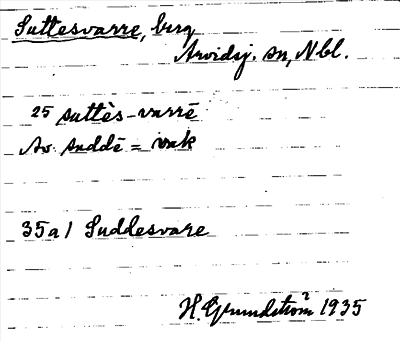 Suttesvarre, berg
Arvidsj. sn, Nbl.
25 suttès-varrē
Av suddē = vak
35a1 Suddesvare
H. Grundström 1935